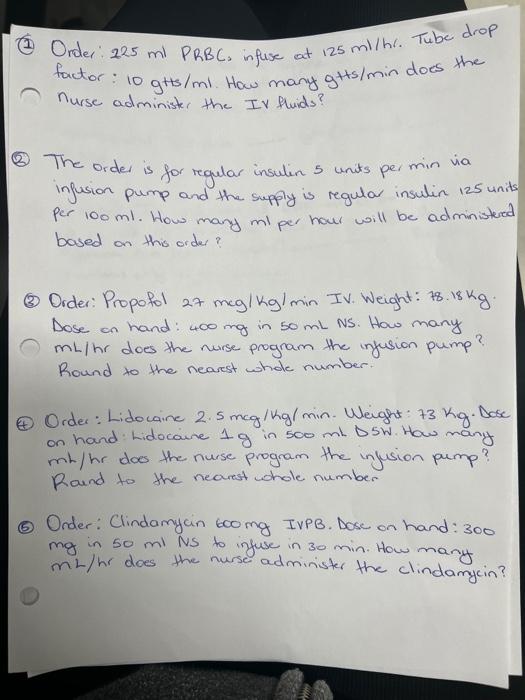 ① Order: 225 ml PRBC, infuse at 125 ml/hr. Tube drop
factor: 10 gtts/ml. How many gtts/min does the
nurse administer the IV fluids?
② The order is for regular insulin 5 units per min via
infusion pump and the supply is regular insulin 125 units
per 100 ml. How many ml per hour will be administered
based on this order?
③ Order: Propofol 27 mcg/kg/min IV. Weight: 78.18 kg.
Dose on hand: 400 mg in 50 mL NS. How many
mL/hr does the nurse program the infusion pump?
Round to the nearest whole number.
④ Order: Lidocaine 2.5 mcg/kg/min. Weight: 73 kg. Dose
on hand: Lidocaine 1g in 500 mL D5W. How many
mL/hr does the nurse program the infusion pump?
Round to the nearest whole number
⑤ Order: Clindamycin 600mg IVPB. Dose on hand: 300
mg in 50 ml NS to infuse in 30 min. How many
mL/hr does the nurse administer the clindamycin?